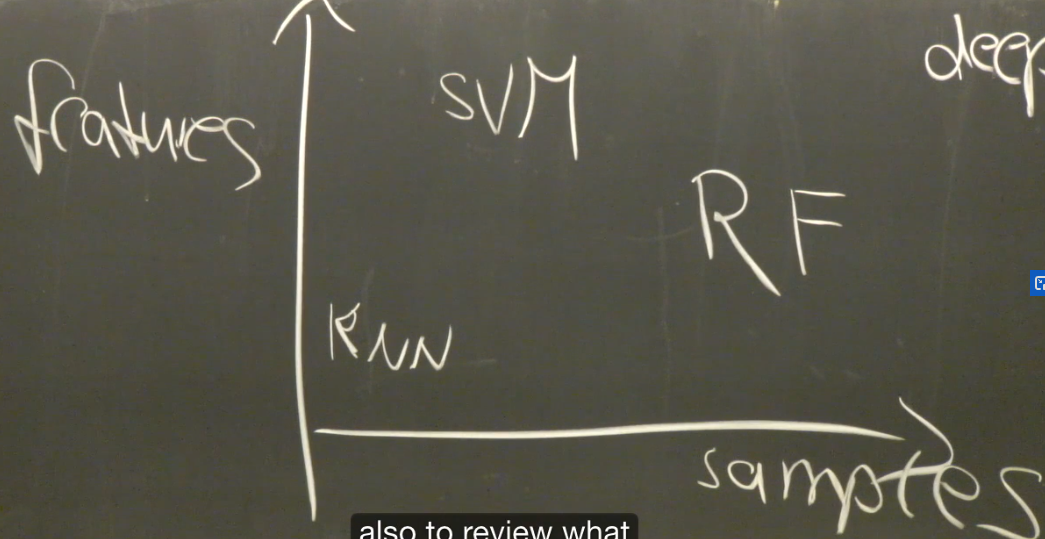 features
SVM
deep
RF
KNN
samples
also to review what